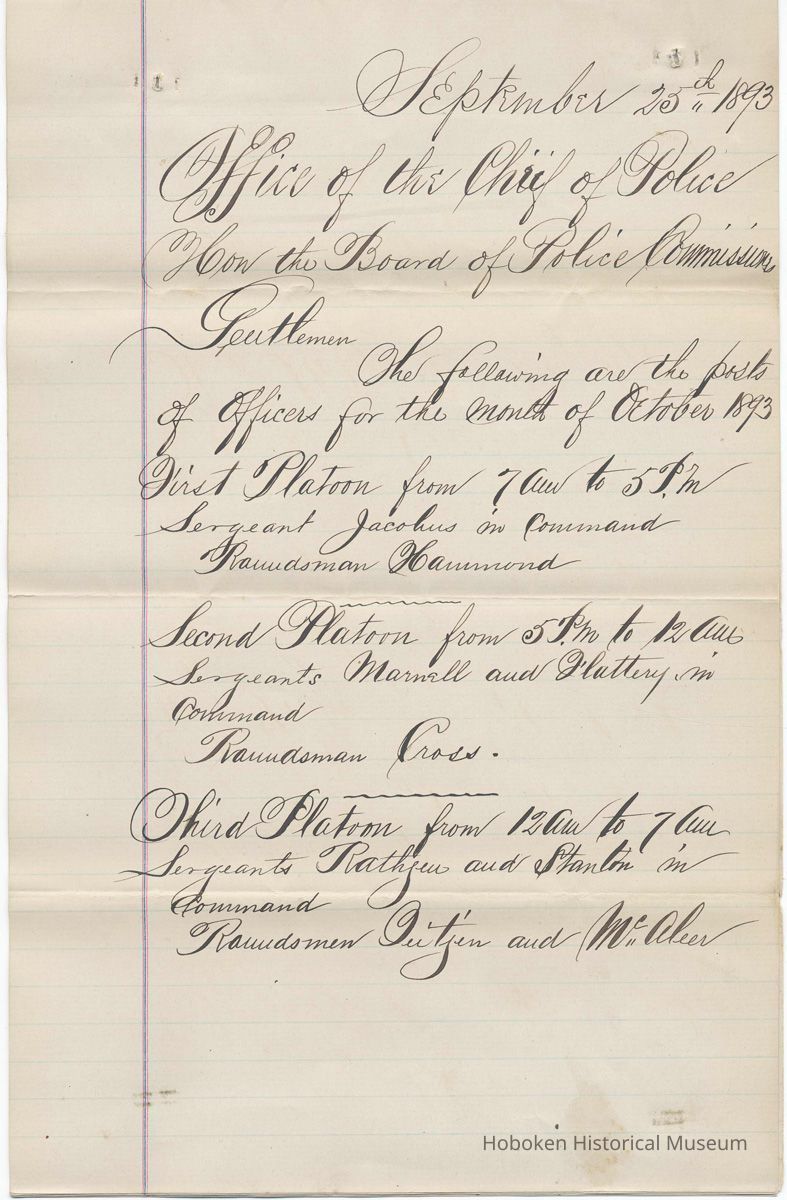 September 25th 1893
Office of the Chief of Police
Hon the Board of Police Commissions
Gentlemen
The following are the posts
of Officers for the month of October 1893
First Platoon from 7 am to 5 P.M
Sergeant Jacobus in Command
Roundsman Hammond
Second Platoon from 5 P.M to 12 am
Sergeants Marnell and Flattery in
Command
Roundsman Cross.
Third Platoon from 12 am to 7 am
Sergeants Rathjen and Stanton in
Command
Roundsmen Quitjen and McAleer
Hoboken Historical Museum